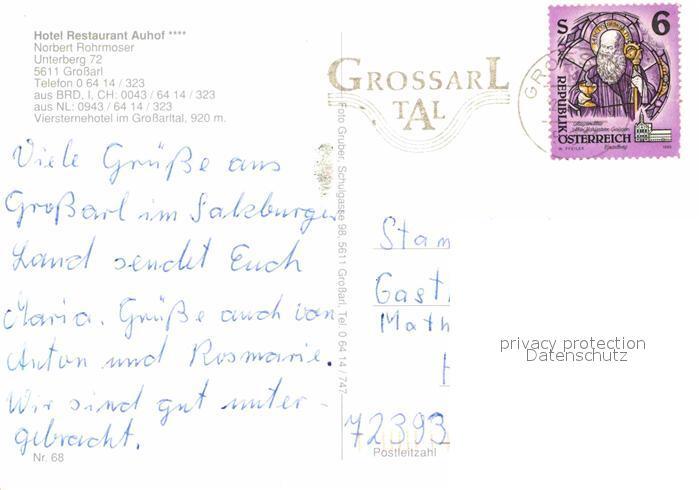 Hotel Restaurant Auhof ****
Norbert Rohrmoser
Unterberg 72
5611 Großarl
Telefon 0 64 14 / 323
aus BRD, I, CH: 0043 / 64 14 / 323
aus NL: 0943 / 64 14 / 323
Viersternehotel im Großarltal, 920 m.
Viele Grüße aus
Großarl im Salzburger
Land sendet Euch
Maria. Grüße auch von
Anton und Rosmarie.
Wir sind gut unter-
gebracht.
Nr. 68
Foto Gruber, Schulgasse 98, 5611 Großarl, Tel. 0 64 14 / 747
GROSSARL
TAL
GRO
S 6
REPUBLIK
ÖSTERREICH
Stam
Gast
Math
72393
Postleitzahl
privacy protection
Datenschutz